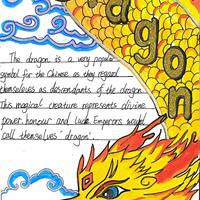 agon
The dragon is a very popular
symbol for the Chinese as they regard
themselves as descendants of the dragon.
This magical creature represents divine
power, honour and luck. Emperors would
call themselves 'dragon'.